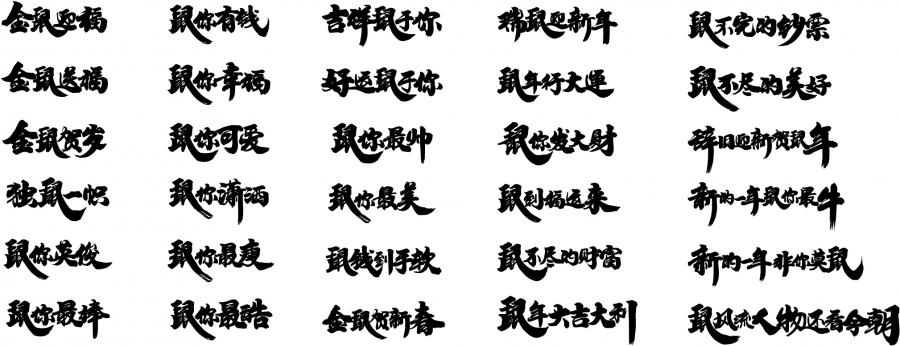 金鼠迎福
鼠你有钱
吉祥鼠于你
瑞鼠迎新年
鼠不完的钞票
金鼠送福
鼠你幸福
好运鼠于你
鼠年行大運
鼠不尽的美好
金鼠贺岁
鼠你可爱
鼠你最帅
鼠你发大财
辞旧迎新贺鼠年
独鼠一帜
鼠你潇洒
鼠你最美
鼠到福运来
新的一年鼠你最牛
鼠你英俊
鼠你最瘦
鼠钱到手软
鼠不尽的财富
新的一年非你莫鼠
鼠你最棒
鼠你最酷
金鼠贺新春
鼠年大吉大利
鼠风流人物还看今朝